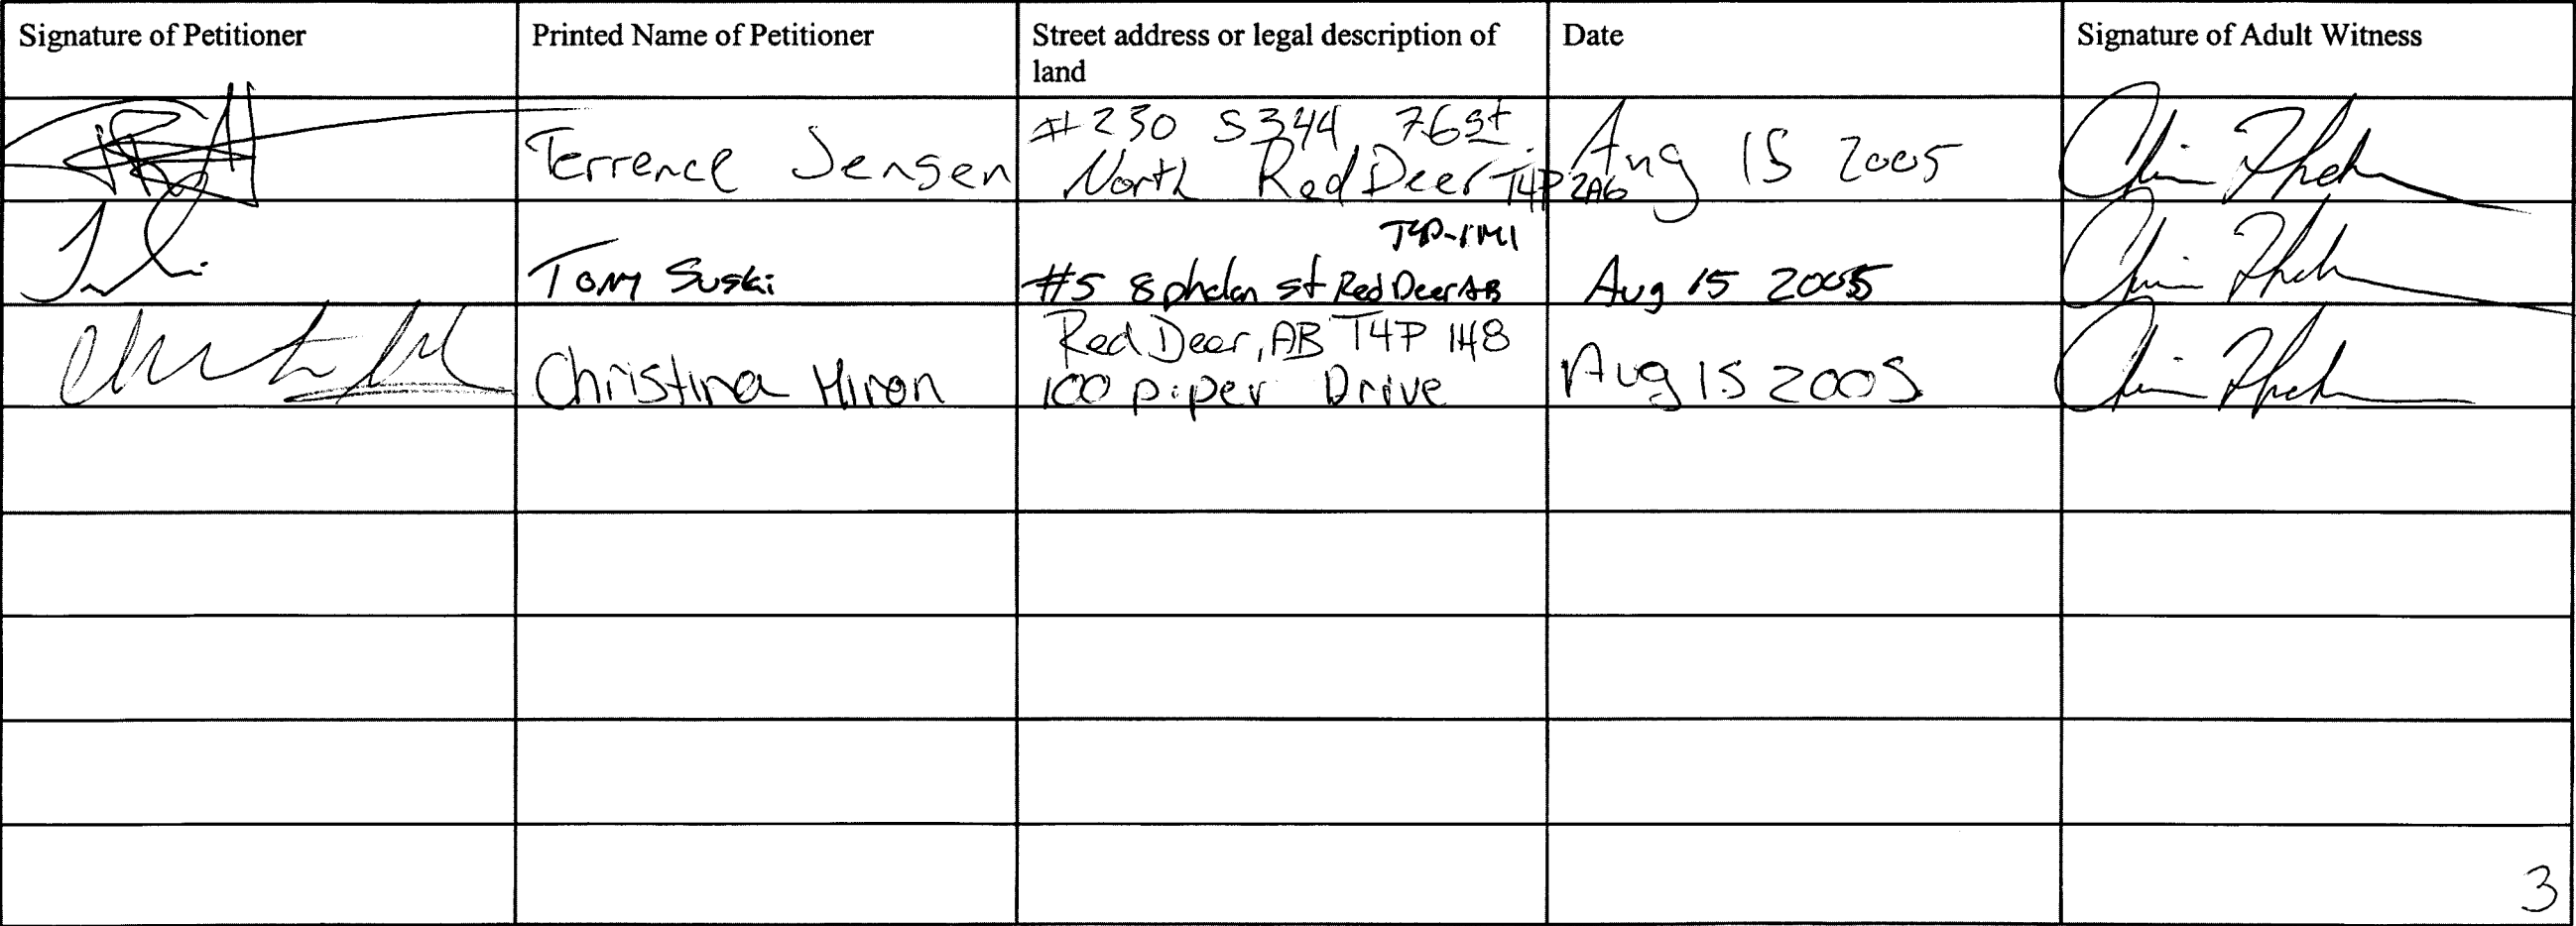 Signature of Petitioner
Printed Name of Petitioner
Street address or legal description of
land
Date
Signature of Adult Witness
Terrence Jensen
#230 5344 76 st.
North Red Deer T4P 2A6
Aug 15 2005
Tony Suski
T4P-1M1
#5 8 phelan st Red Deer AB
Aug 15 2005
Christina Miron
Red Deer, AB T4P 1H8
100 piper Drive
Aug 15 2005
3